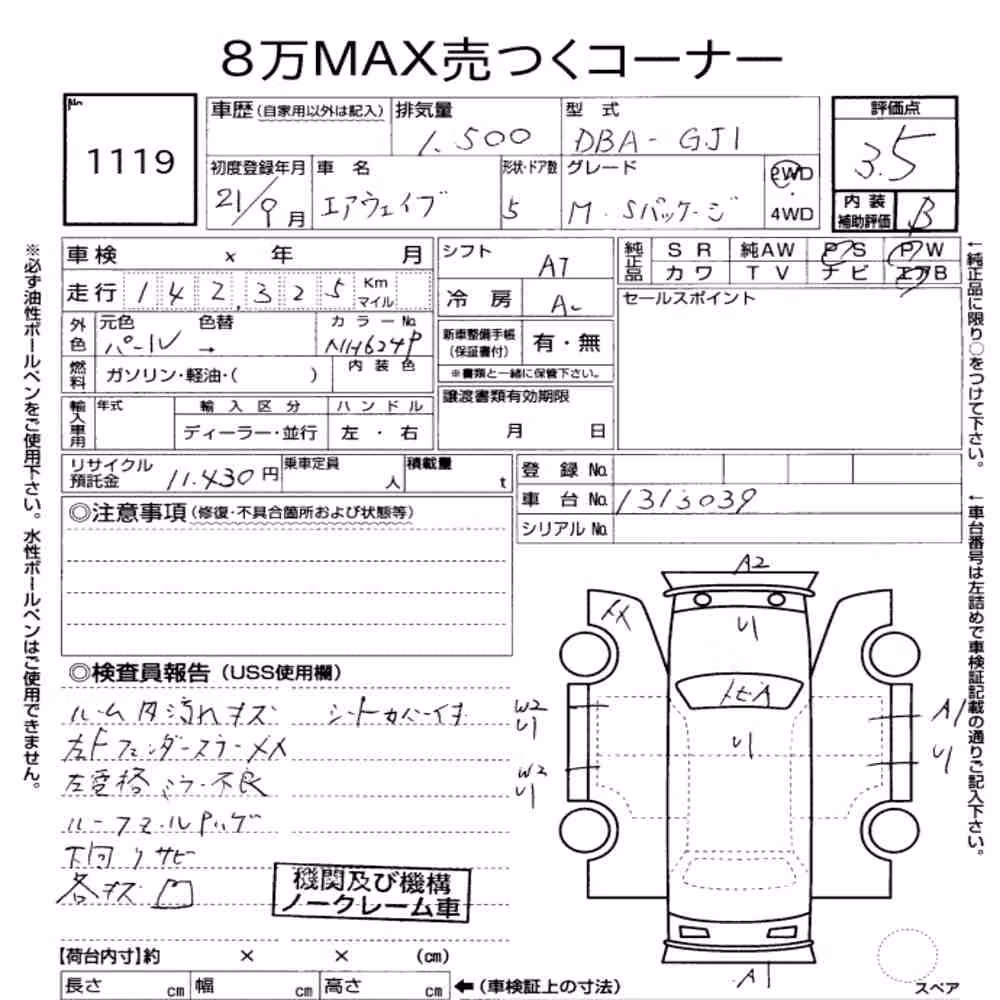 8万MAX売つくコーナー
No. 1119
車歴(自家用以外は記入) 排気量 1.500 型式 DBA-GJ1 評価点 3.5
初度登録年月 21/9月 車名 エアウェイブ 形状・ドア数 5 グレード M・Sパッケージ 2WD・4WD 内装補助評価 B
車検 × 年 月 シフト AT 純正品 SR 純AW PS PW
走行 142,325 Km マイル 冷房 AC カワ TV ナビ エアB
外色 元色 パール → 色替 カラーNo. NH624P 新車整備手帳(保証書付) 有・無 セールスポイント
燃料 ガソリン・軽油・( ) 内装色 ※書類と一緒に保管下さい。
輸入車用 年式 輸入区分 ハンドル 譲渡書類有効期限
ディーラー・並行 左・右 月 日
リサイクル預託金 11.430円 乗車定員 人 積載量 t 登録No.
車台No. 1313039
シリアルNo.
◎注意事項(修復・不具合箇所および状態等)
◎検査員報告(USS使用欄)
ルーム内汚れキズ シートカバー付
左Fフェンダーステーメメ
左電格ミラー不良
下回りサビ
各キズ凹
機関及び機構
ノークレーム車
【荷台内寸】約 × × (cm)
長さ cm 幅 cm 高さ cm ←(車検証上の寸法)
A2
メメ
U1
トビA
U1
W2
U1
W2
U1
A1
U1
A1
スペア
※必ず油性ボールペンをご使用下さい。水性ボールペンはご使用できません。
←純正品に限り○をつけて下さい。
←車台番号は左詰めで車検証記載の通りご記入下さい。